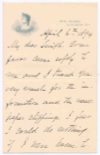 April 6th
My dear Smith: Your
favor came safely to
me and I thank you
very much for the in-
formation and the news
paper clippings. I fear
I could do nothing
if I were down in